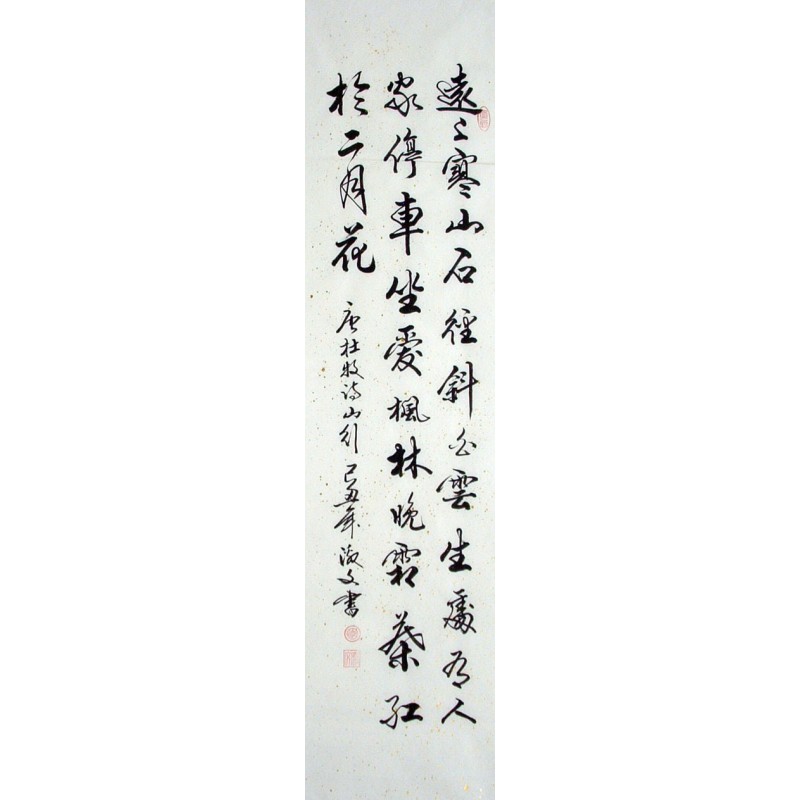 遠々寒山石徑斜白雲生處有人
家停車坐愛楓林晚霜葉紅
於二月花
唐杜牧诗山行 己丑年淑文書